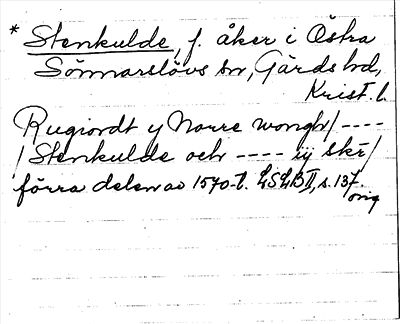 * Stenkulde, f. åker i Östra
Sönnarslövs sn, Gärds hd,
Krist. l.
Rugiordt y Norre wongh/ ----
/ Stenkulde och ---- iij skr/
förra delen av 1570-t. LSLB II, s. 137.
orig